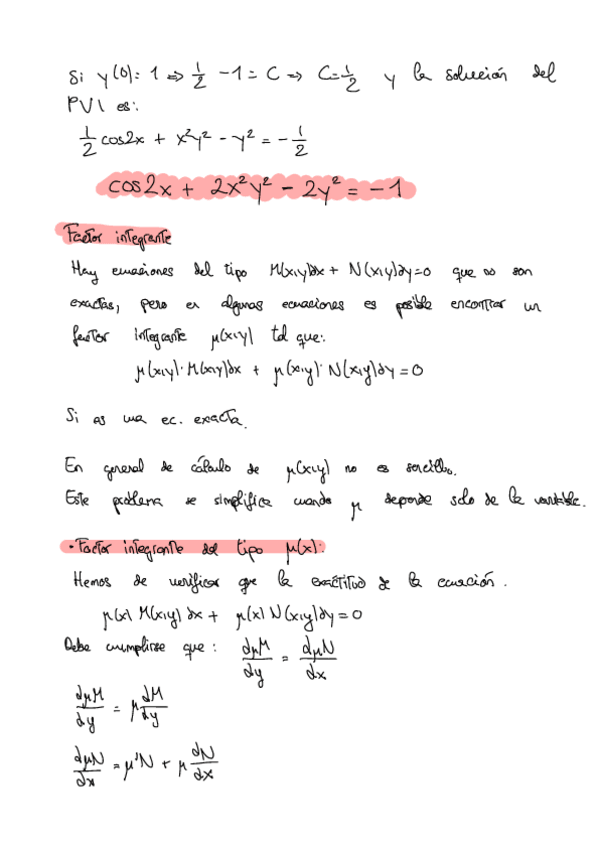 Si y(0)=1 => 1/2 -1 = C => C=-1/2 y la solución del
PVI es:
1/2 cos2x + x²y² - y² = -1/2
cos2x + 2x²y² - 2y² = -1
Factor integrante
Hay ecuaciones del tipo M(x,y)dx + N(x,y)dy=0 que no son
exactas, pero en algunas ecuaciones es posible encontrar un
factor integrante μ(x,y) tal que:
μ(x,y)·M(x,y)dx + μ(x,y)·N(x,y)dy=0
Si es una ec. exacta.
En general de cálculo de μ(x,y) no es sencillo.
Este problema se simplifica cuando μ depende solo de la variable.
• Factor integrante del tipo μ(x):
Hemos de verificar que la exactitud de la ecuación.
μ(x) M(x,y) dx + μ(x) N(x,y)dy=0
Debe cumplirse que: dμM/dy = dμN/dx
dμM/dy = μ dM/dy
dμN/dx = μ'N + μ dN/dx